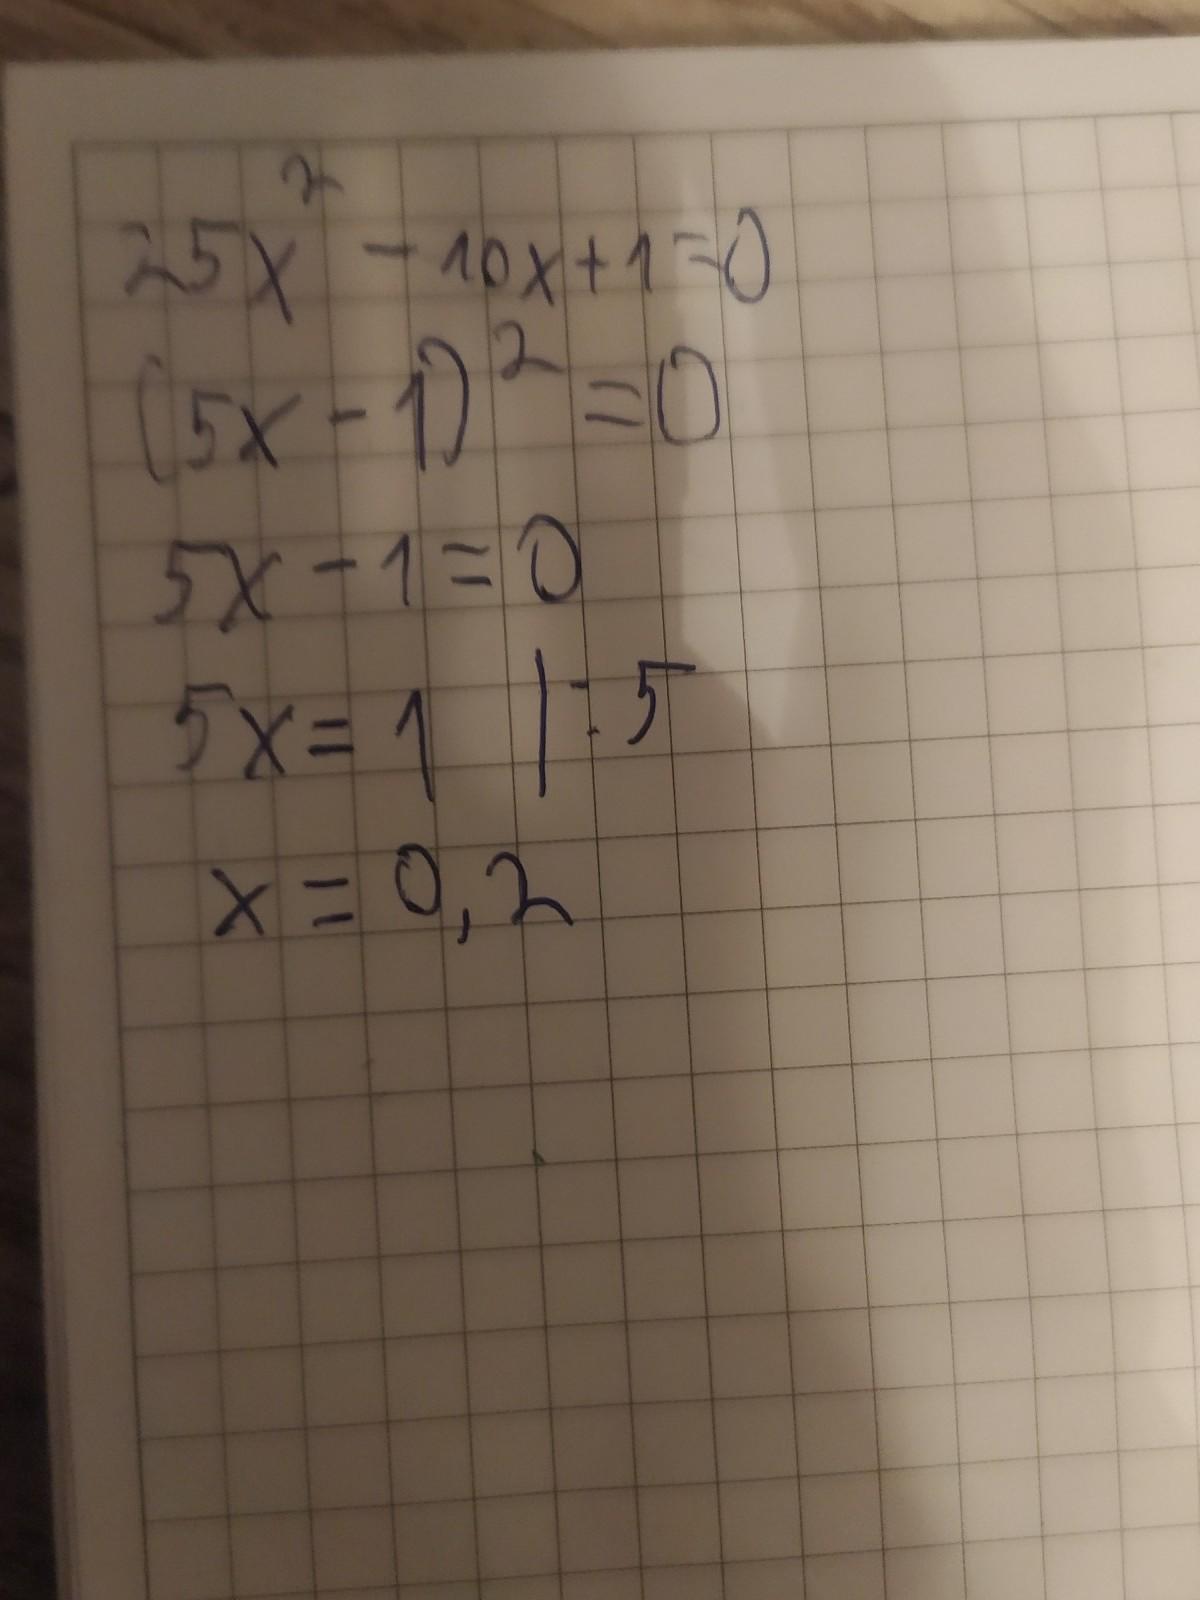 25x² - 10x + 1 = 0
(5x - 1)² = 0
5x - 1 = 0
5x = 1 | : 5
x = 0,2